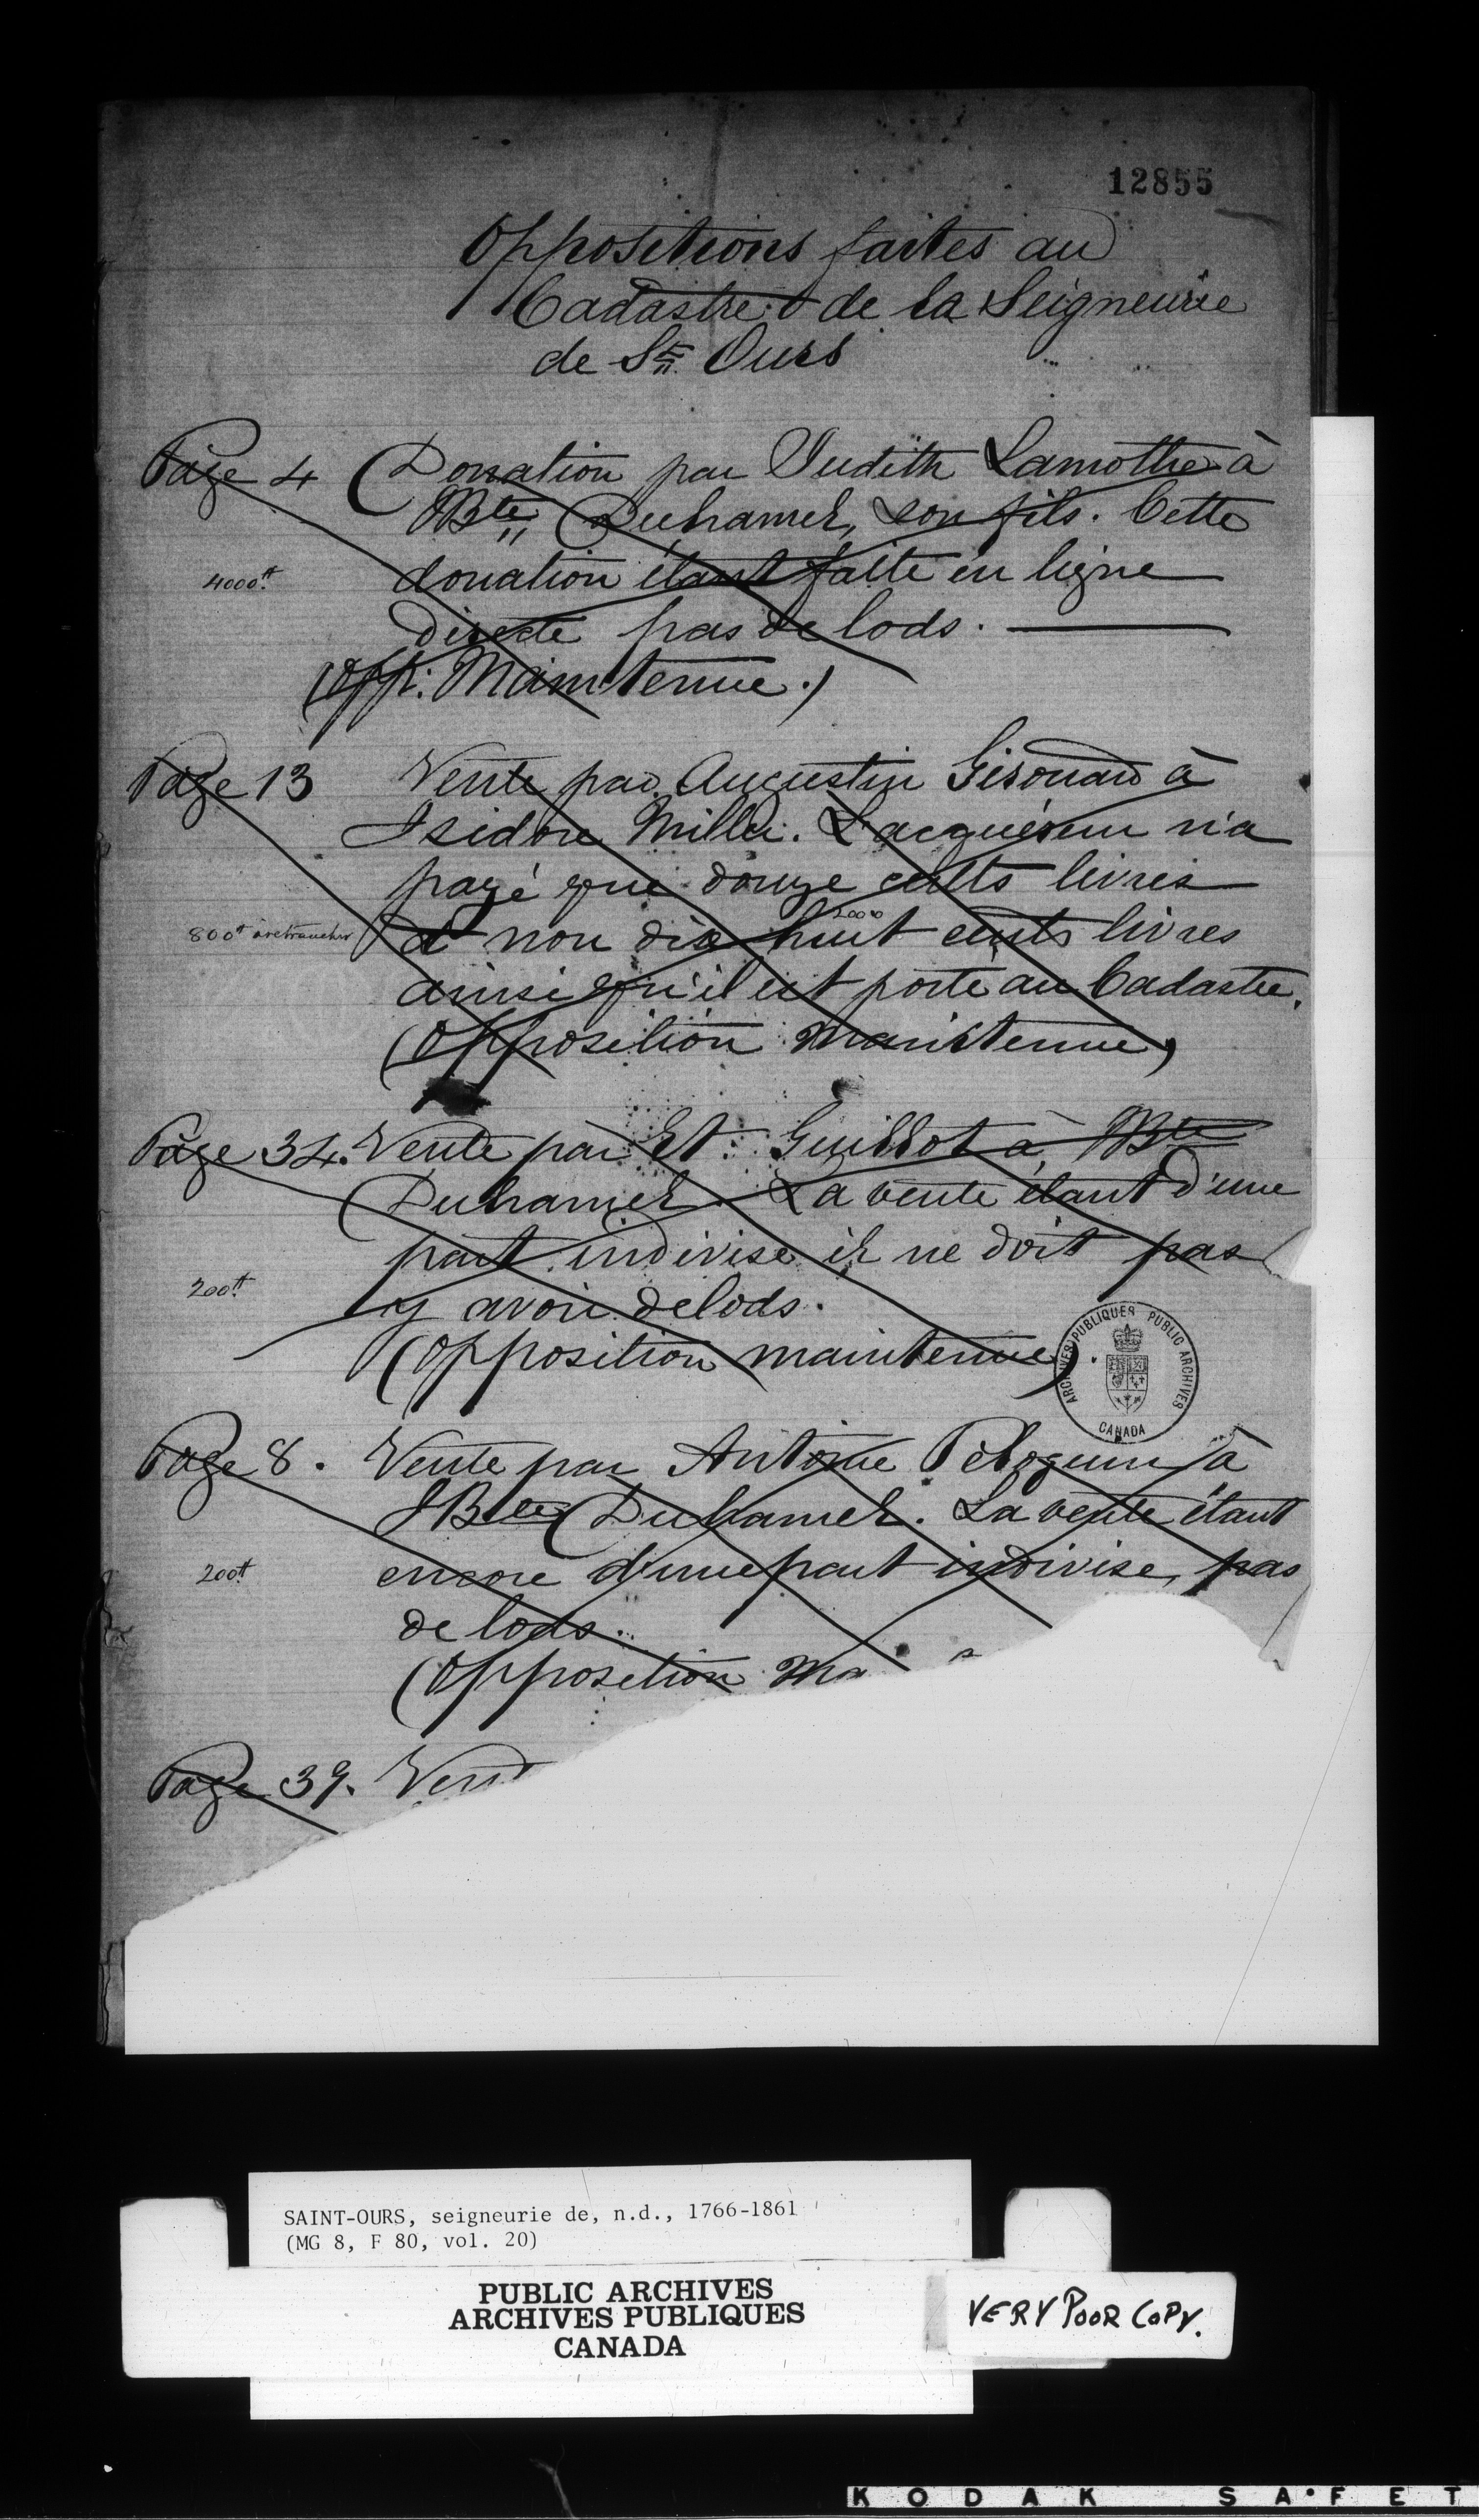 12855
Oppositions faites au
Cadastre de la Seigneurie
de St. Ours
Page 4 Donation par Judith Lamothe à
JBte Duhamel, son fils. Cette
4000# donation étant faite en ligne
directe pas de lods.
(Opp: Maintenue.)
Page 13 Vente par Augustin Girouard à
Isidore Miller. L'acquéreur n'a
payé que douze cents livres
800# à retrancher et non dix huit cents livres
2000
ainsi qu'il est porté au Cadastre.
(Opposition Maintenue)
Page 34. Vente par Et. Guillot à JBte
Duhamel. La vente étant d'une
part indivise il ne doit pas
200# y avoir de lods.
(Opposition maintenue).
ARCHIVES PUBLIQUES PUBLIC ARCHIVES
CANADA
Page 8. Vente par Antoine Péloquin à
JBte Duhamel. La vente étant
200# encore d'une part indivise, pas
de lods.
(Opposition Ma
Page 39. Vent
SAINT-OURS, seigneurie de, n.d., 1766-1861
(MG 8, F 80, vol. 20)
PUBLIC ARCHIVES
ARCHIVES PUBLIQUES
CANADA
VERY POOR COPY.
KODAK SAFET